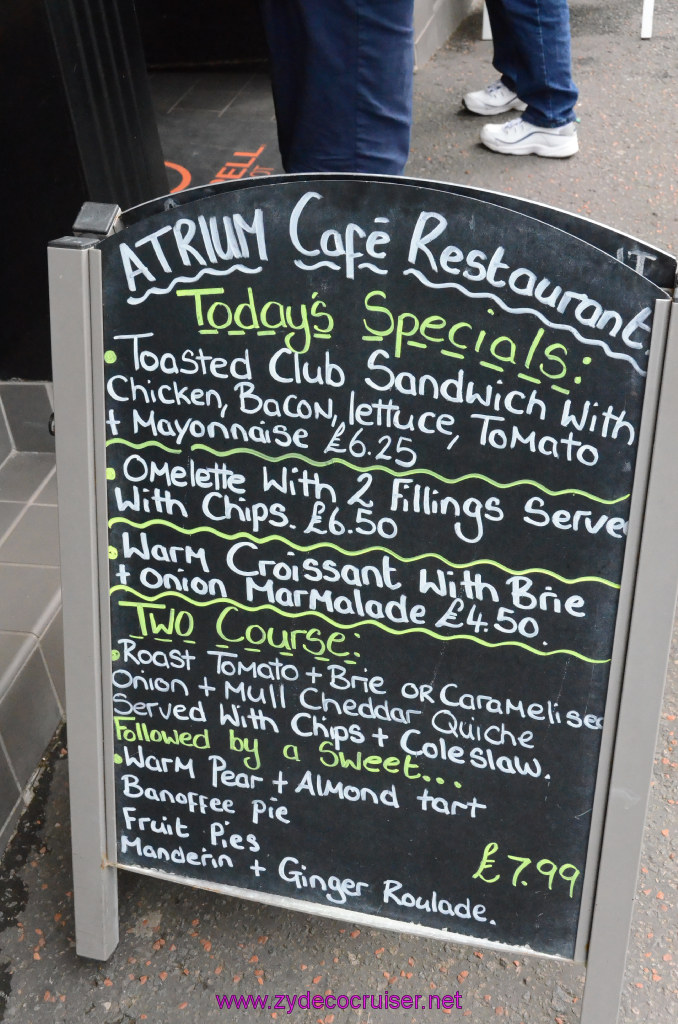 ELL
ATRIUM Café Restaurant.
Today's Specials:
• Toasted Club Sandwich With
Chicken, Bacon, lettuce, Tomato
+ Mayonnaise £6.25
• Omelette With 2 Fillings Serve
With Chips. £6.50
• Warm Croissant With Brie
+ Onion Marmalade £4.50.
Two Course:
• Roast Tomato + Brie OR Caramelised
Onion + Mull Cheddar Quiche
Served With Chips + Coleslaw.
Followed by a Sweet...
• Warm Pear + Almond tart
Banoffee pie
Fruit Pies
Manderin + Ginger Roulade.
£7.99
www.zydecocruiser.net